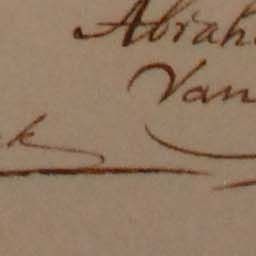 Abrah
Van
k